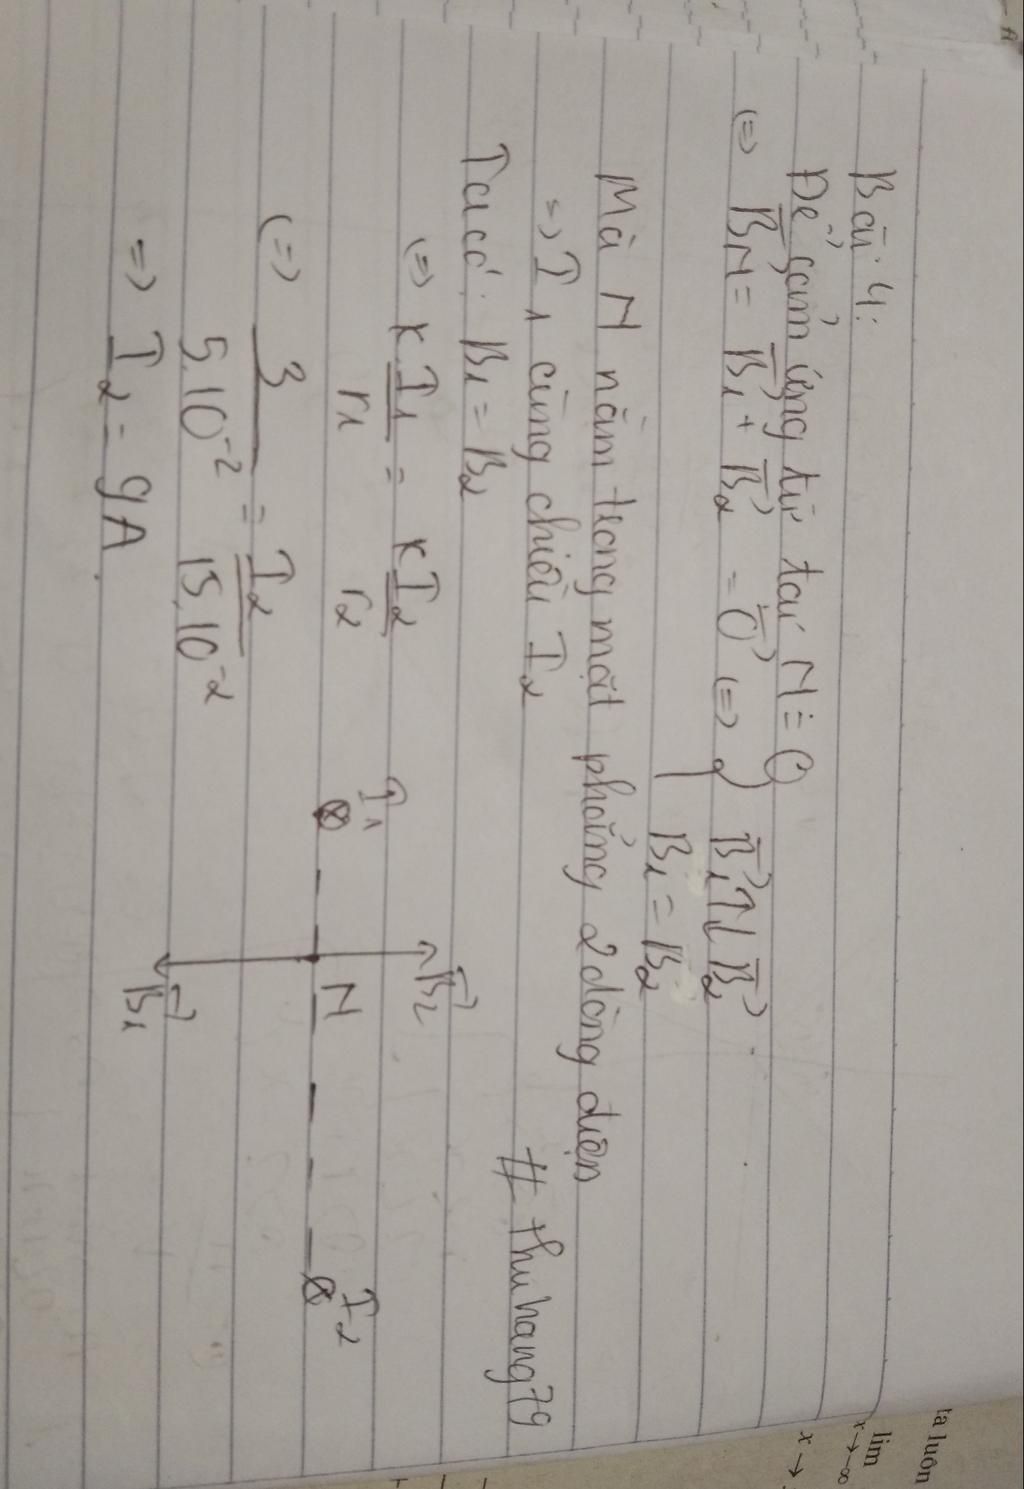 Bài 4:
Để cảm ứng từ tại M = 0
(=) B⃗M = B⃗1 + B⃗2 = 0⃗ (=) { B⃗1 ↑↓ B⃗2
B1 = B2
Mà M nằm trong mặt phẳng 2 dòng điện
=> I1 cùng chiều I2
# thuhang79
Ta có: B1 = B2
(=) K I1/r1 = K I2/r2
(=) 3/5.10^-2 = I2/15.10^-2
=> I2 = 9A
I1
M
I2
B⃗2
B⃗1
ta luôn
lim
x→-∞
x→